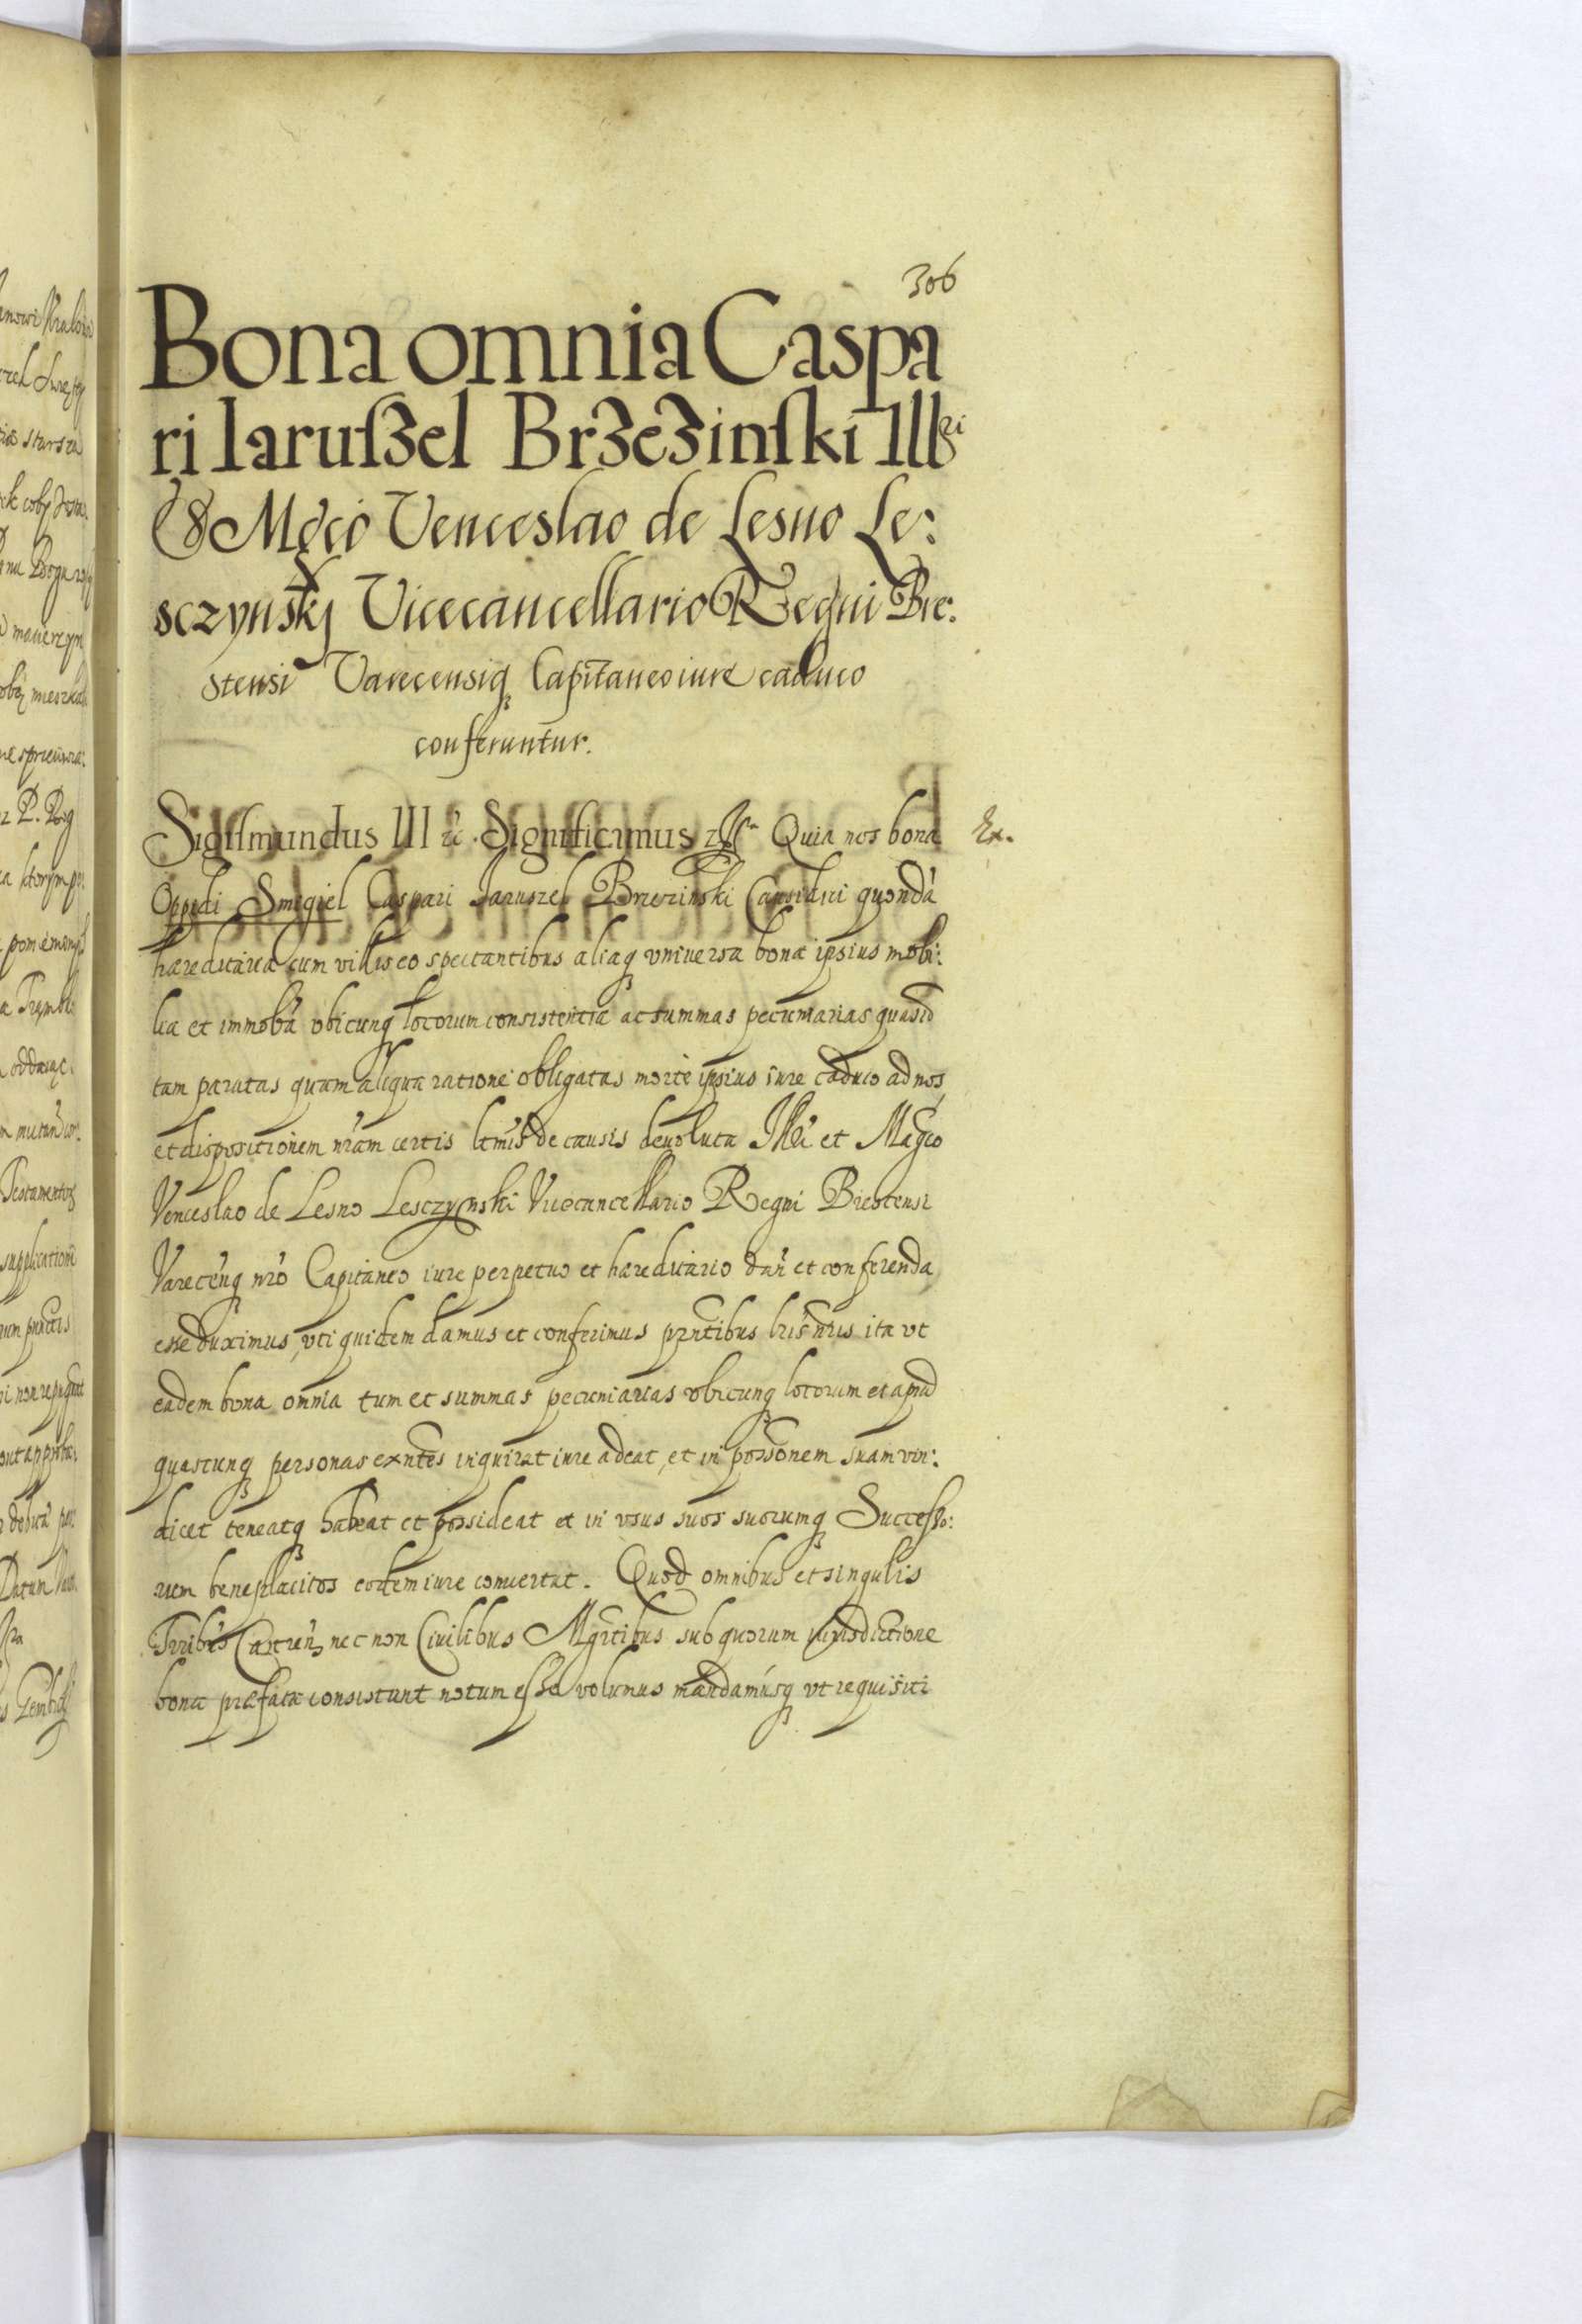 306
Bona omnia Caspa
ri Iaruſzel Brzezinſki Illri
& Mgco Venceslao de Lesno Le:
sczynskj Vicecancellario Regni Bre:
stensi Varecensiq Capitaneo iure caduco
conferuntur.
Sigismundus III etc. Significamus etc Quia nos bona Ex.
Oppidi Smigiel Caspari Jaruszel Brzezinski Causidici quondā
haereditaria cum villis eo spectantibus aliaq vniuersa bona ipsius mobi:
lia et immobā vbicunq locorum consistentia ac summas pecuniarias quasvis
tam paratas quam aliqua ratione obligatas morte ipsius iure caduco ad nos
et dispositionem nr̄am certis ltmis de causis deuoluta Illri et Magco
Venceslao de Lesno Lesczynski Vicecancellario Regni Brestensi
Varecen̄q nr̄o Capitaneo iure perpetuo et haereditario dan̄ et conferenda
esse duximus, vti quidem damus et conferimus prn̄tibus lr̄is nr̄is ita vt
eadem bona omnia tum et summas pecuniarias vbicunq locorum et apud
quascunq personas exn̄tes inquirat iure adeat, et in possonem suam vin:
dicet teneatq habeat et possideat et in vsus suos suorumq Successo:
rum beneplacitos eodem iure conuertat. Quod omnibus et singulis
Trribus Castren̄ nec non Ciuilibus Mgrtibus sub quorum iurisdictione
bona praefata consistunt notum esse volumus mandamusq vt requisiti